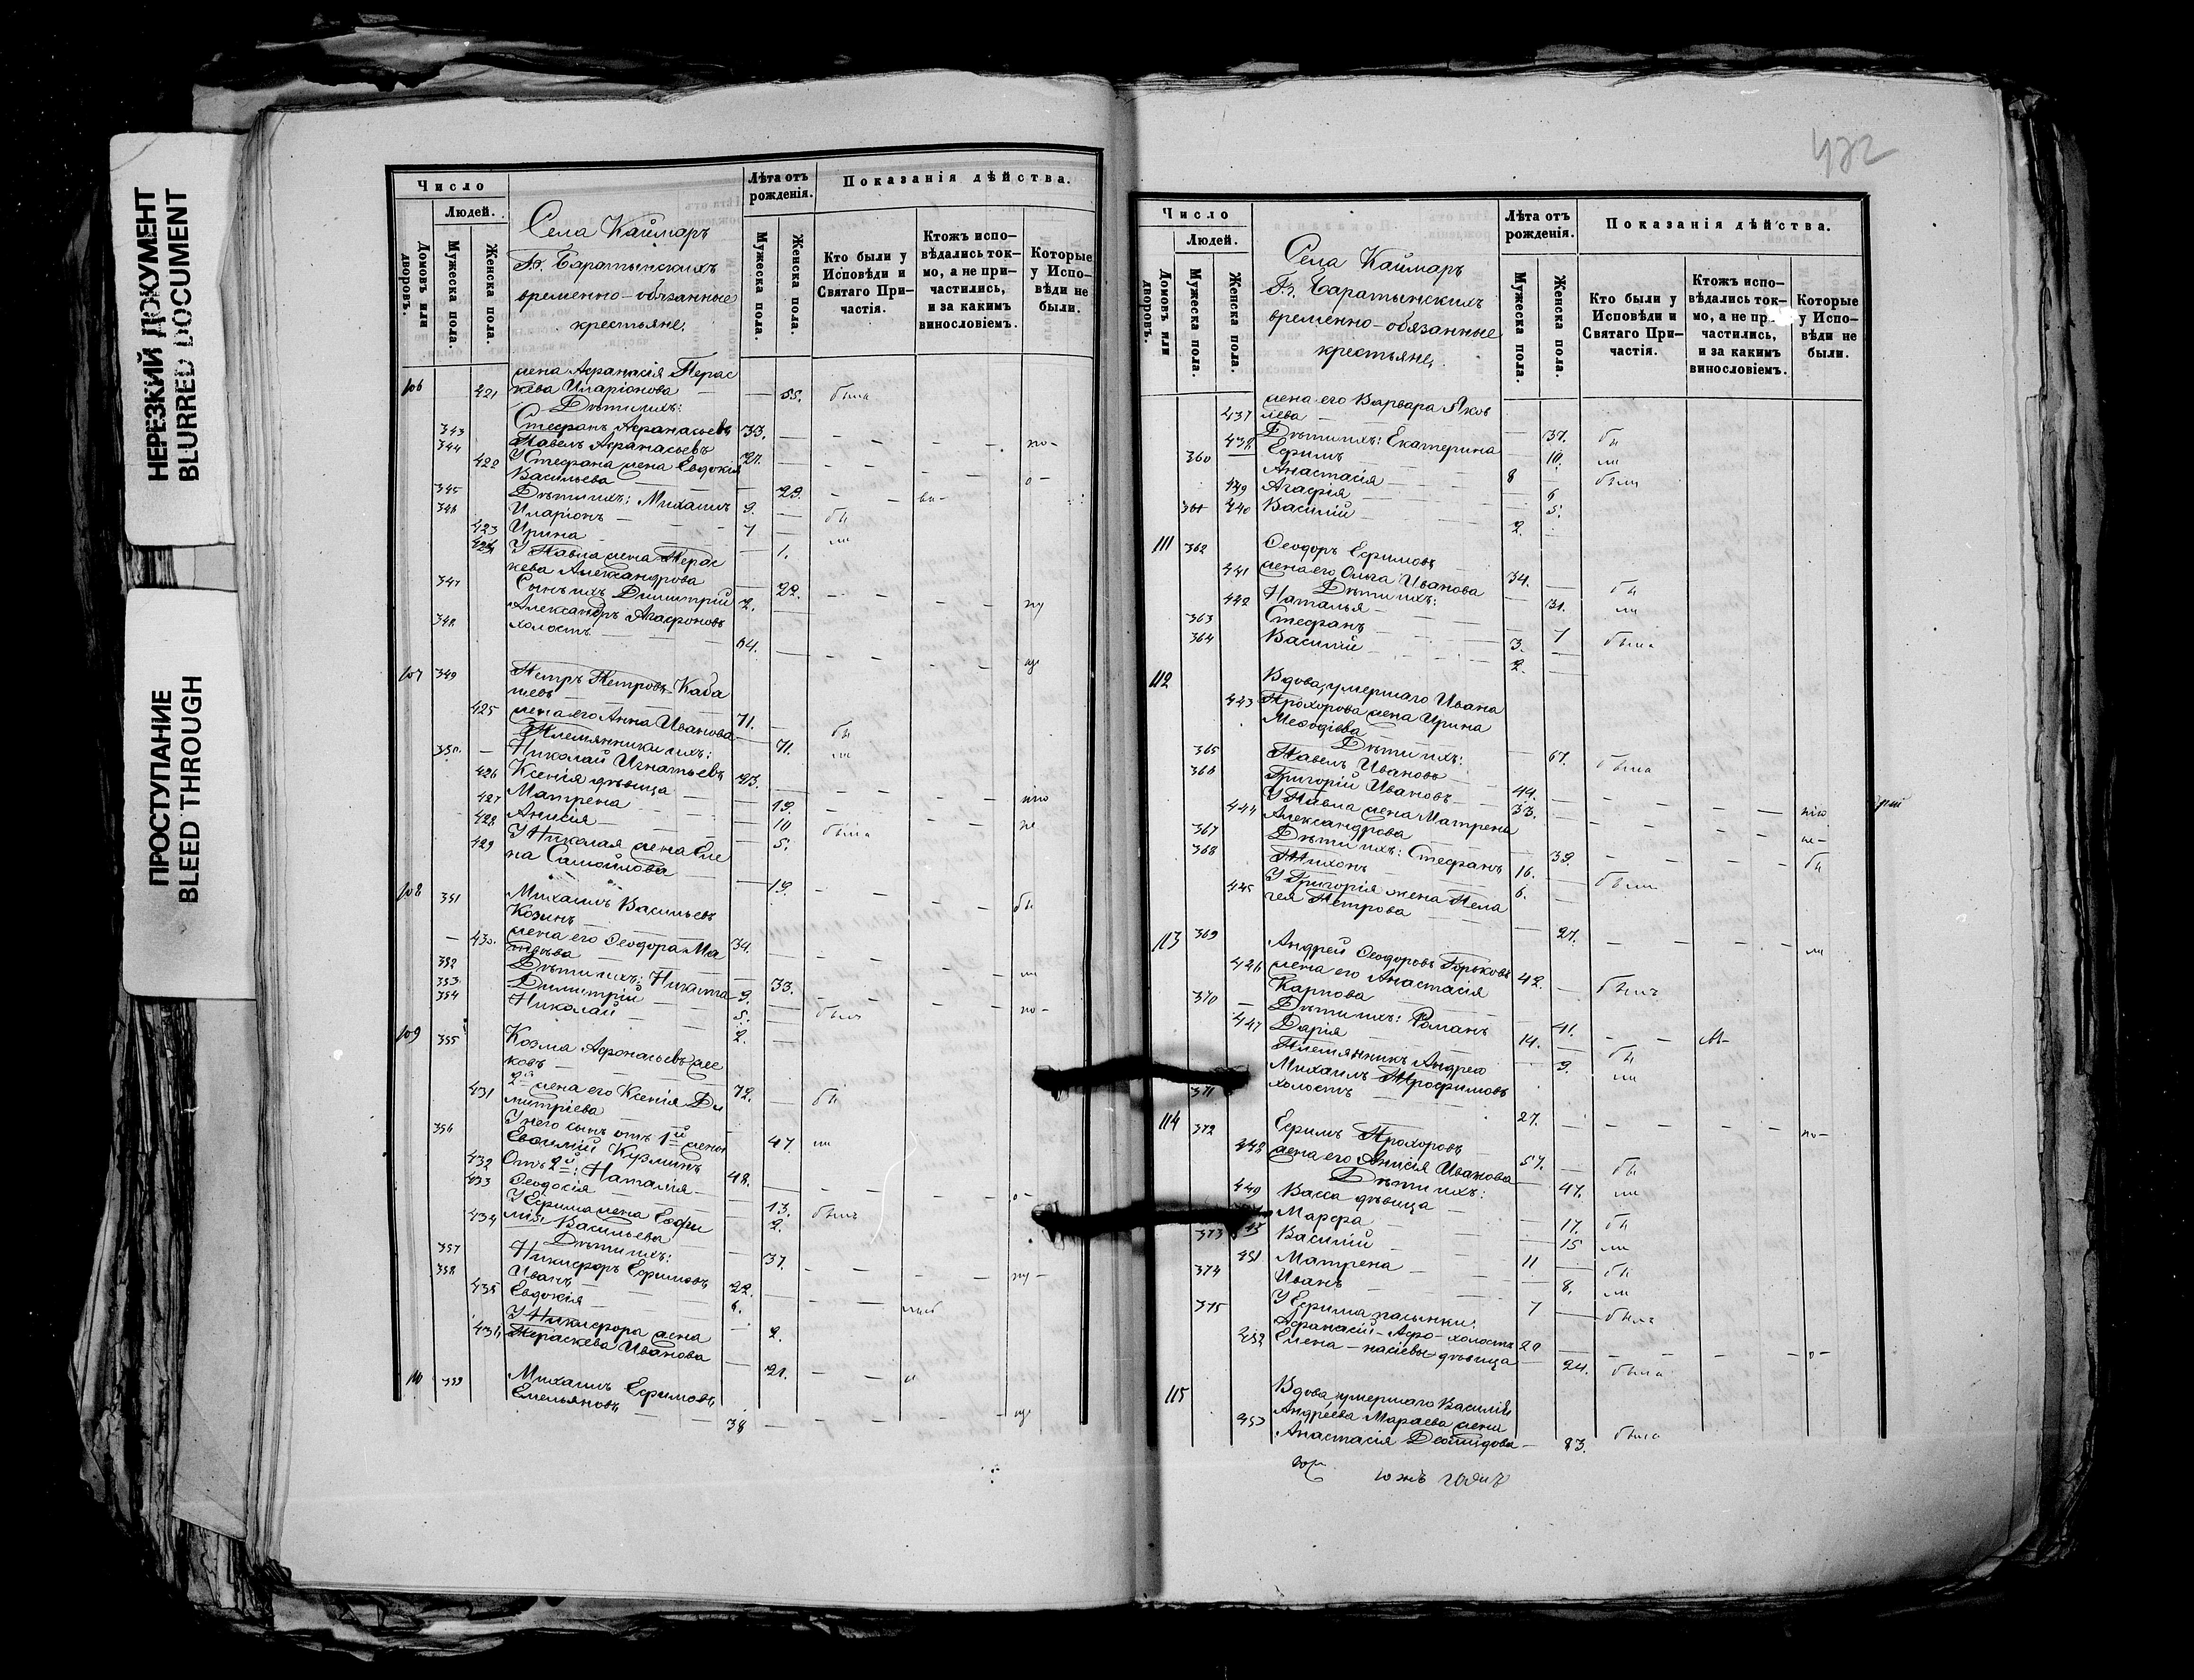 НЕРЕЗКИЙ ДОКУМЕНТ
BLURRED DOCUMENT
ПРОСТУПАНИЕ
BLEED THROUGH
Число
Людей.
Домовъ или дворовъ.
Мужеска пола.
Женска пола.
Села Каймаръ
Гг. Баратынскихъ
временно-обязанные
крестьяне.
Лѣта отъ рожденія.
Мужеска пола.
Женска пола.
Показанія дѣйства.
Кто были у Исповѣди и Святаго Причастія.
Ктожъ исповѣдались токмо, а не причастились, и за какимъ винословіемъ.
Которые у Исповѣди не были.
106 жена Афанасія Парас
421 кева Иларіонова 55. была
Дѣти ихъ:
343 Стефанъ Афанасьевъ 33.
344 Павелъ Афанасьевъ 27.
422 У Стефана жена Евдокія
Васильева 29.
345 Дѣти ихъ: Михаилъ 9. бы
346 Иларіонъ 7 ли
423 Ирина 1.
424 У Павла жена Парас
кева Александрова 22.
347 Сынъ ихъ Димитрій 2.
Александръ Агафоновъ
348 холостъ 64.
107 349 Петръ Петровъ Каба
шевъ 71. бы
425 жена его Анна Иванова 71. ли
Племянники ихъ:
350. Николай Игнатьевъ 23.
426 Ксенія дѣвица 19.
427 Матрена 10 была
428 Анисія 5.
429 У Николая жена Еле
на Самойлова 19.
108 351 Михаилъ Васильевъ
Козинъ 34.
430. жена его Ѳеодора Ма
33.
352 Дѣти ихъ: Никита 9. былъ
353 Димитрій 5.
354 Николай 2.
109 355 Козма Афонасьевъ
ковъ 72. бы
431 2я жена его Ксенія Ди
митріева 47. ли
У него сынъ отъ 1й жены
356 Евѳимій Кузминъ 48.
432 Отъ 2й: Наталія 13.
433 Ѳеодосія 2.
434 У Ефима жена Евфи
мія Васильева 37.
Дѣти ихъ:
357 Никифоръ Ефимовъ 22.
358 Иванъ 6.
435 Евдокія 2.
У Никифора жена
436 Параскева Иванова 21.
110 359 Михаилъ Ефимовъ
Емельяновъ 38
422
Число
Людей.
Домовъ или дворовъ.
Мужеска пола.
Женска пола.
Села Каймаръ
Гг. Баратынскихъ
временно-обязанные
крестьяне.
Лѣта отъ рожденія.
Мужеска пола.
Женска пола.
Показанія дѣйства.
Кто были у Исповѣди и Святаго Причастія.
Ктожъ исповѣдались токмо, а не причастились, и за какимъ винословіемъ.
Которые у Исповѣди не были.
жена его Варвара Яков
437 лева 37. бы
438 Дѣти ихъ: Екатерина 10. ли
360 Ефимъ 8 были
Анастасія 6
Агафія 5.
361 440 Василій 2.
111 362 Ѳеодоръ Ефимовъ 34. бы
441 жена его Ольга Иванова 31. ли
Дѣти ихъ:
442 Наталья 7 была
363 Стефанъ 3.
364 Василій 2.
112 Вдова, умершаго Ивана
443 Прохорова жена Ирина
Меѳодіева 67. была
Дѣти ихъ:
365 Павелъ Ивановъ 44.
366 Григорій Ивановъ 33.
444 У Павла жена Матрена
Александрова 39.
367 Дѣти ихъ: Стефанъ 16. были
368 Тихонъ 6.
445 У Григорія жена Пела
гея Петрова 27.
113 369 Андрей Ѳеодоровъ Горьковъ 42. былъ
446 жена его Анастасія
Карпова 41.
370 Дѣти ихъ: Романъ 14. бы
447 Дарія 9. ли
Племянникъ Андрею
Михаилъ Трофимовъ
371 холостъ 27.
114 372 Ефимъ Прохоровъ 57. бы
448 жена его Анисія Иванова 47. ли
Дѣти ихъ:
449 Васса дѣвица 17. бы
Марфа 15 ли
373 Василій 11 бы
451 Матрена 8. ли
374 Иванъ 7 былъ
У Ефима пасынки:
375 Афанасій Афо- холостъ 29
452 Елена насьевы дѣвица 24. была
115 Вдова, умершаго Василія
Андреева Мараева жена
453 Анастасія Демидова 83. была